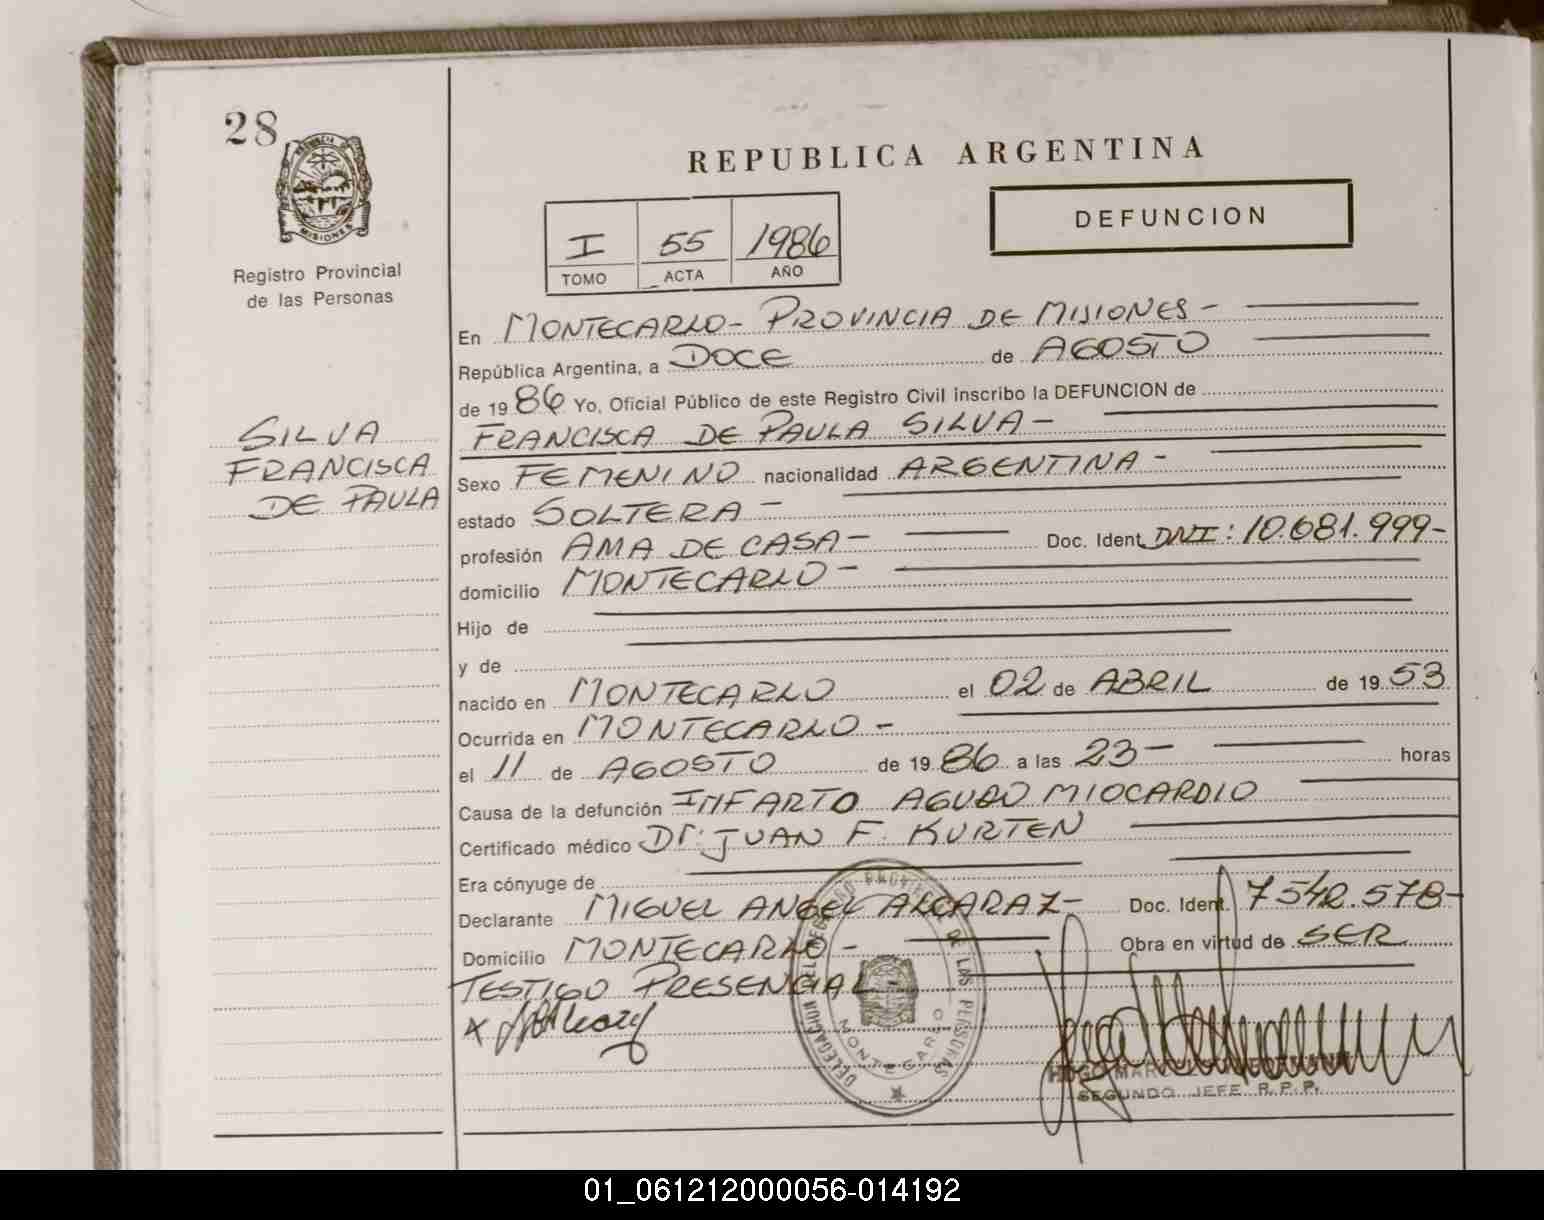 28
PROVINCIA DE
MISIONES
Registro Provincial
de las Personas
SILVA
FRANCISCA
DE PAULA
REPUBLICA ARGENTINA
I 55 1986
TOMO ACTA AÑO
DEFUNCION
En MONTECARLO - PROVINCIA DE MISIONES -
República Argentina, a DOCE de AGOSTO
de 19 86 Yo, Oficial Público de este Registro Civil inscribo la DEFUNCION de
FRANCISCA DE PAULA SILVA -
Sexo FEMENINO nacionalidad ARGENTINA -
estado SOLTERA -
profesión AMA DE CASA - Doc. Ident. DNI: 10.681.999-
domicilio MONTECARLO -
Hijo de
y de
nacido en MONTECARLO el 02 de ABRIL de 19 53
Ocurrida en MONTECARLO -
el 11 de AGOSTO de 19 86 a las 23 - horas
Causa de la defunción INFARTO AGUDO MIOCARDIO
Certificado médico Dr. JUAN F. KURTEN
Era cónyuge de
Declarante MIGUEL ANGEL ALCARAZ - Doc. Ident. 7542.578-
Domicilio MONTECARLO - Obra en virtud de SER
TESTIGO PRESENCIAL -
DELEGACION DEL REGISTRO PROVINCIAL DE LAS PERSONAS
MONTECARLO
HUGO
SEGUNDO JEFE R.P.P.
01_061212000056-014192